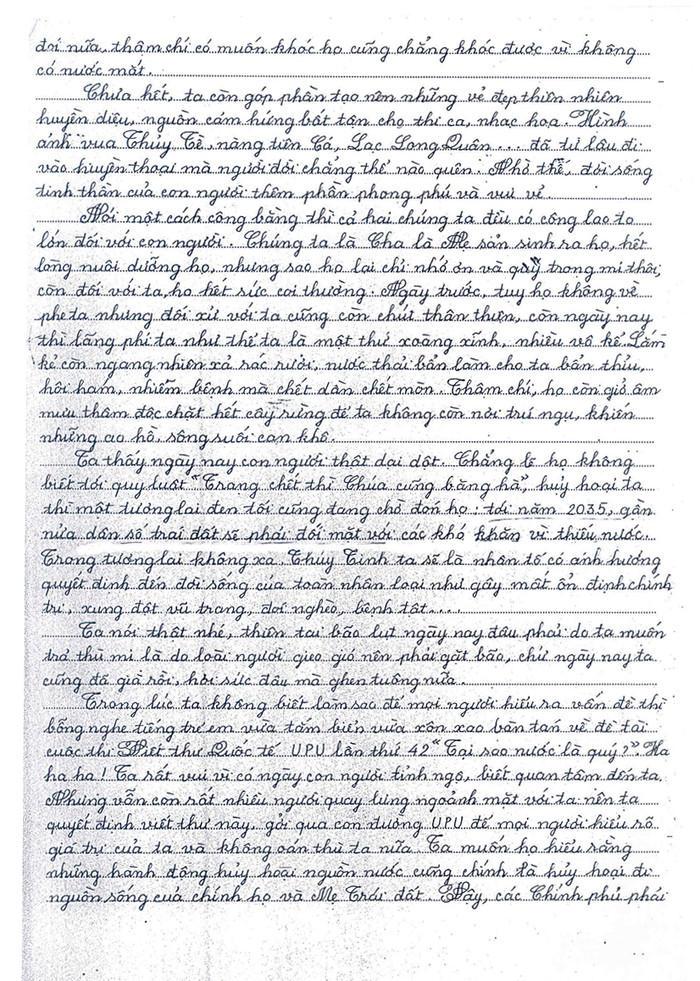 đời nữa, thậm chí có muốn khóc họ cũng chẳng khóc được vì không
có nước mắt.
Chưa hết, ta còn góp phần tạo nên những vẻ đẹp thiên nhiên
huyền diệu, nguồn cảm hứng bất tận cho thi ca, nhạc họa. Hình
ảnh vua Thủy Tề, nàng tiên Cá, Lạc Long Quân... đã từ lâu đi
vào huyền thoại mà người đời chẳng thể nào quên. Nhờ thế, đời sống
tinh thần của con người thêm phần phong phú và vui vẻ.
Nói một cách công bằng thì cả hai chúng ta đều có công lao to
lớn đối với con người. Chúng ta là Cha là Mẹ sản sinh ra họ, hết
lòng nuôi dưỡng họ, nhưng sao họ lại chỉ nhớ ơn và quý trọng mi thôi,
còn đối với ta, họ hết sức coi thường. Ngày trước, tuy họ không về
phe ta nhưng đối xử với ta cũng còn chút thân thiện, còn ngày nay
thì lãng phí ta như thể ta là một thứ xoàng xĩnh, nhiều vô kể. Lắm
kẻ còn ngang nhiên xả rác rưởi, nước thải bẩn làm cho ta bẩn thỉu,
hôi hám, nhiễm bệnh mà chết dần chết mòn. Thậm chí, họ còn giở âm
mưu thâm độc chặt hết cây rừng để ta không còn nơi trú ngụ, khiến
những ao hồ, sông suối cạn khô.
Ta thấy ngày nay con người thật dại dột. Chẳng lẽ họ không
biết tới quy luật "Trạng chết thì Chúa cũng băng hà", huỷ hoại ta
thì một tương lai đen tối cũng đang chờ đón họ: tới năm 2035, gần
nửa dân số trái đất sẽ phải đối mặt với các khó khăn vì thiếu nước.
Trong tương lai không xa, Thủy Tinh ta sẽ là nhân tố có ảnh hưởng
quyết định đến đời sống của toàn nhân loại như gây mất ổn định chính
trị, xung đột vũ trang, đói nghèo, bệnh tật....
Ta nói thật nhé, thiên tai bão lụt ngày nay đâu phải do ta muốn
trả thù mi là do loài người gieo gió nên phải gặt bão, chứ ngày nay ta
cũng đã già rồi, hơi sức đâu mà ghen tuông nữa.
Trong lúc ta không biết làm sao để mọi người hiểu ra vấn đề thì
bỗng nghe tiếng trẻ em vừa tắm biển vừa xôn xao bàn tán về đề tài
cuộc thi Viết thư Quốc tế UPU lần thứ 42 "Tại sao nước là quý?". Ha
ha ha! Ta rất vui vì có ngày con người tỉnh ngộ, biết quan tâm đến ta.
Nhưng vẫn còn rất nhiều người quay lưng ngoảnh mặt với ta nên ta
quyết định viết thư này, gởi qua con đường UPU để mọi người hiểu rõ
giá trị của ta và không oán thù ta nữa. Ta muốn họ hiểu rằng
những hành động hủy hoại nguồn nước cũng chính là hủy hoại đi
nguồn sống của chính họ và Mẹ Trái đất. Vậy, các Chính phủ phải